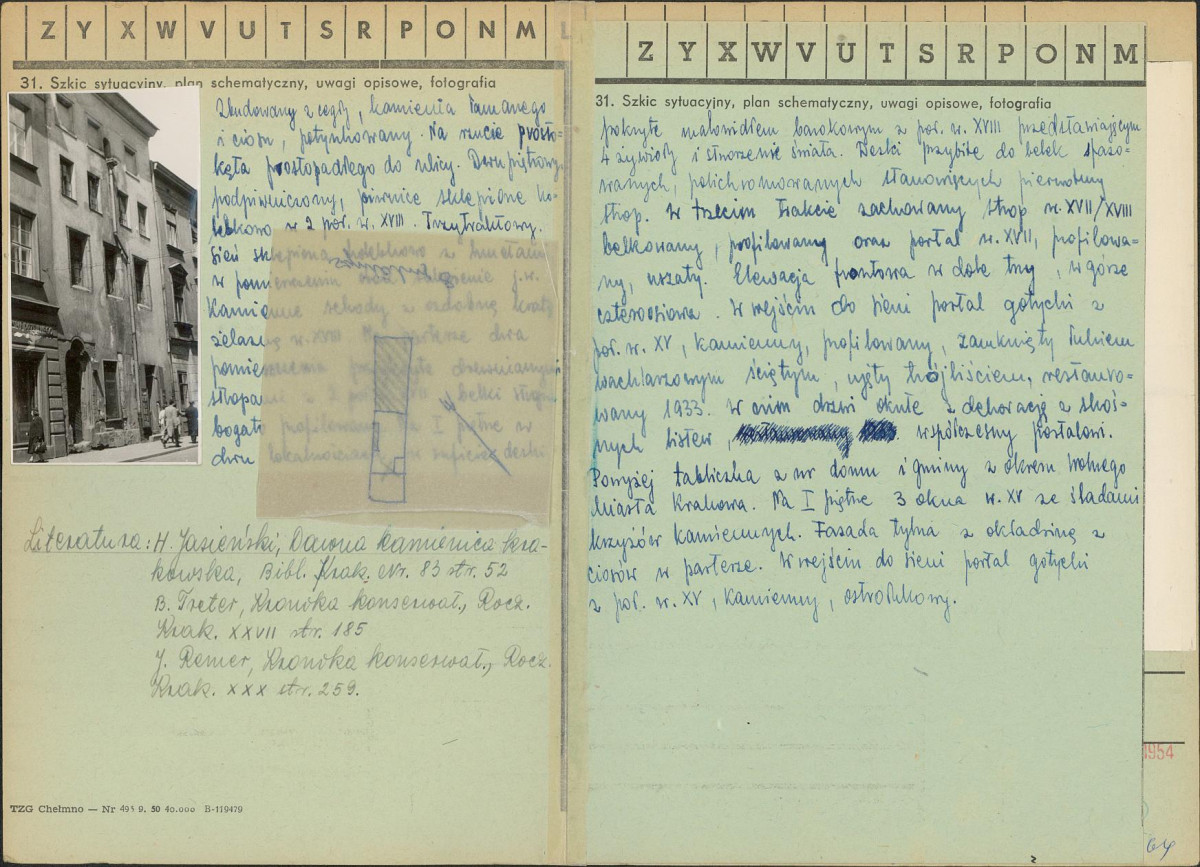 Z Y X W V U T S R P O N M L
31. Szkic sytuacyjny, plan schematyczny, uwagi opisowe, fotografia
Zbudowany z cegły, kamienia łamanego
i ciosu, potynkowany. Na rzucie prosto-
kąta prostopadłego do ulicy. Dwupiętrowy,
podpiwniczony, piwnice sklepione ko-
lebkowo w 2 poł. w. XVIII. Trzytraktowy.
Sień sklepiona kolebkowo z lunetami
w pomieszczeniu sklepienie j.w.
Kamienne schody z ozdobną kratą
żelazną w. XVIII. Na parterze dwa
pomieszczenia drewnianymi
stropami z 2 poł. belki stropu
bogato profilowane. Na I piętrze w
dwu lokalnościach na suficie deski
Literatura: H. Jasieński, Dawna kamienica kra-
kowska, Bibl. Krak. Nr. 83 str. 52
B. Treter, Kronika konserwat., Rocz.
Krak. XXVII str. 185
J. Remer, Kronika konserwat., Rocz.
Krak. XXX str. 259.
TZG Chełmno — Nr 495 9. 50 40.000 B-119479
Z Y X W V U T S R P O N M
31. Szkic sytuacyjny, plan schematyczny, uwagi opisowe, fotografia
pokryte malowidłem barokowym z poł. w. XVIII przedstawiającym
4 żywioły i stworzenie świata. Deski przybite do belek fazo-
wanych, polichromowanych stanowiących pierwotny
strop. W trzecim trakcie zachowany strop w. XVII/XVIII
belkowany, profilowany oraz portal w. XVII, profilowa-
ny, uszaty. Elewacja frontowa w dole trzy, w górze
czteroosiowa. W wejściu do sieni portal gotycki z
poł. w. XV, kamienny, profilowany, zamknięty łukiem
wachlarzowym ściętym, ujęty trójliściem, restauro-
wany 1933. W nim drzwi okute z dekoracją z skoś-
nych listew, współczesny portalowi.
Powyżej tabliczka z nr domu i gminy z okresu Wolnego
Miasta Krakowa. Na I piętrze 3 okna w. XV ze śladami
krzyżów kamiennych. Fasada tylna z okładziną z
ciosów w parterze. W wejściu do sieni portal gotycki
z poł. w. XV, kamienny, ostrołukowy.
1954
64